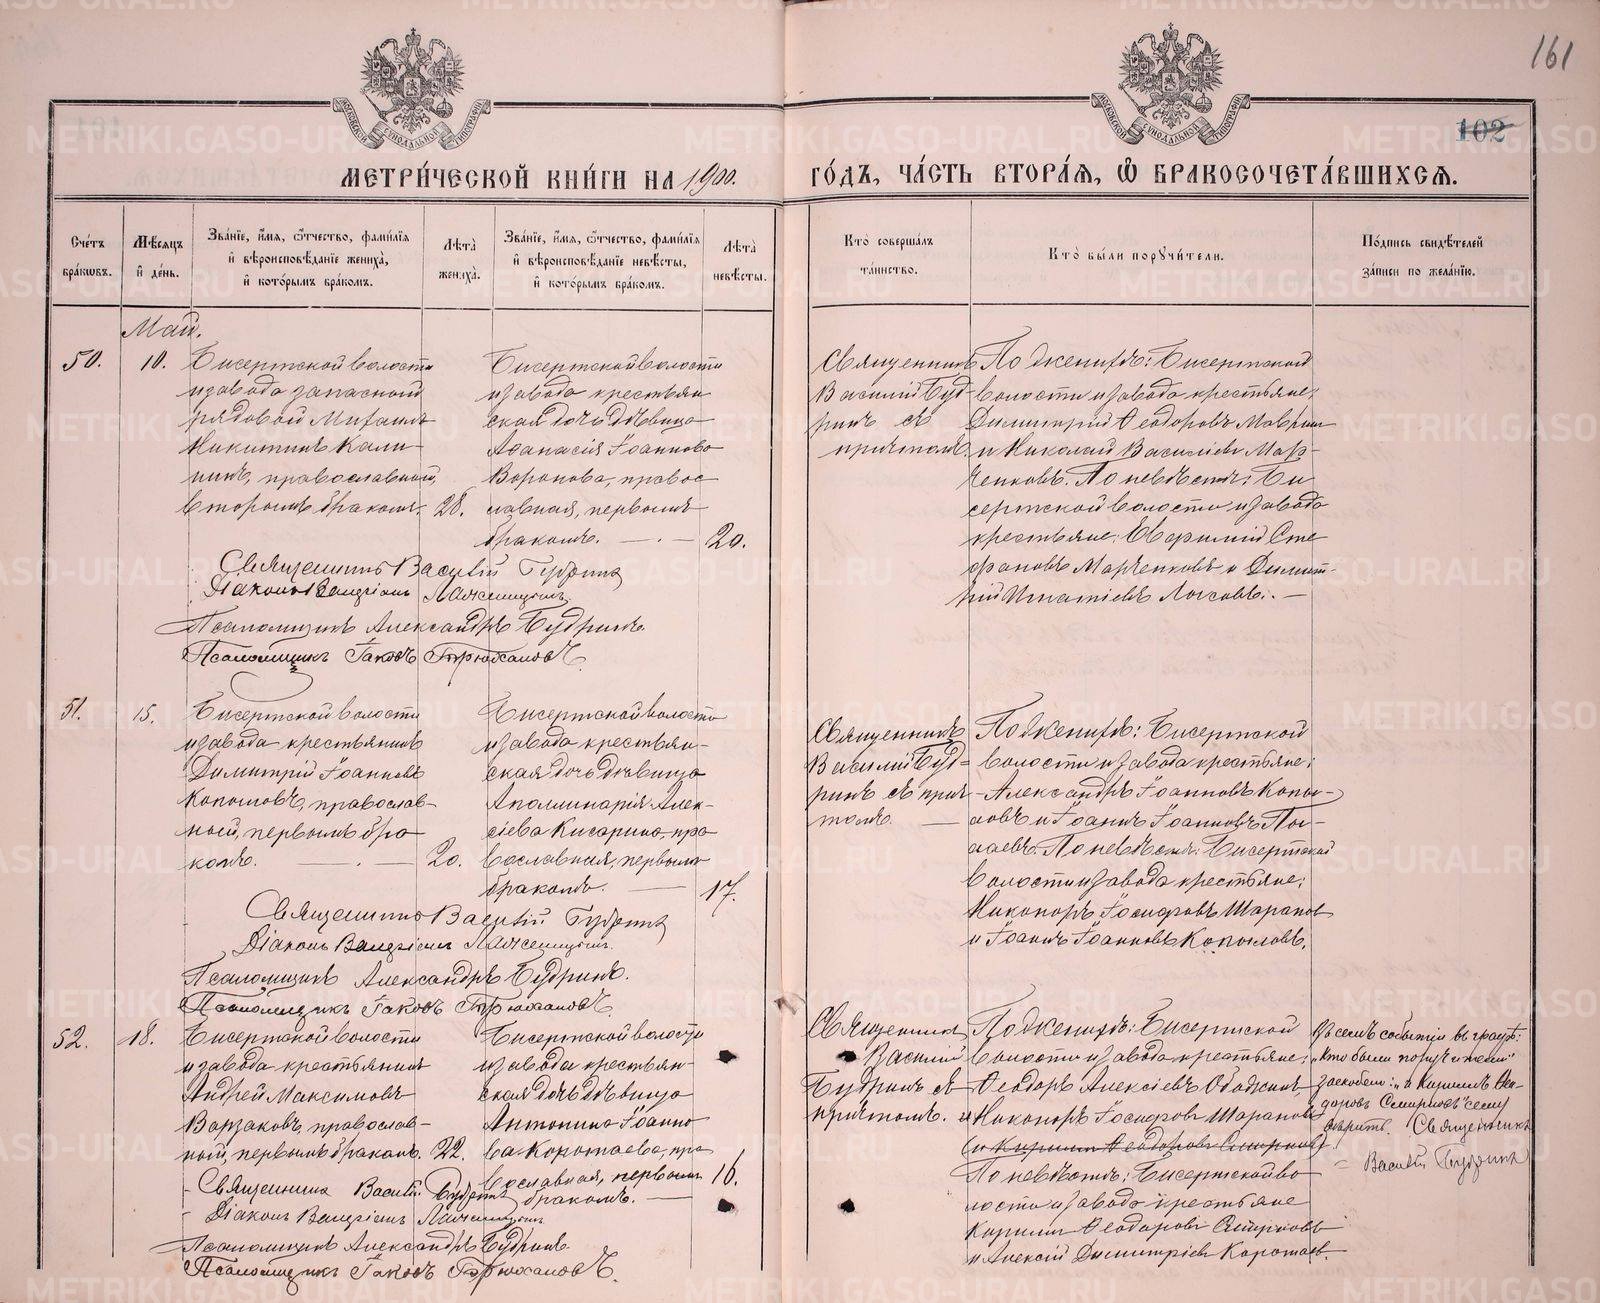 161
102
МЕТРИ́ЧЕСКОЙ КНИ́ГИ НА 1900. ГО́ДЪ, ЧА́СТЬ ВТОРА́Я, Ѡ БРАКОСОЧЕТА́ВШИХСЯ.
Сче́тъ бра́кѡвъ.
Мѣ́сяцъ и҆ де́нь.
Зва́нїе, и҆́мя, ѻ҆́тчество, фами́лїя
и҆ вѣроисповѣ́данїе жениха̀,
и҆ кото́рымъ бра́комъ.
Лѣта̀ жениха̀.
Зва́нїе, и҆́мя, ѻ҆́тчество, фами́лїя
и҆ вѣроисповѣ́данїе невѣ́сты,
и҆ кото́рымъ бра́комъ.
Лѣта̀ невѣ́сты.
Кто̀ соверша́лъ
та́инство.
Кто̀ бы́ли порꙋчи́тели.
По́дпись свидѣ́телей
за́писи по жела́нїю.
Май.
50.
10.
Бисертской волости
и завода запасной
рядовой Михаилъ
Никитинъ Кали-
нинъ, православной,
вторымъ бракомъ.
28.
Бисертской волости
и завода крестьян
ская дочь дѣвица
Аѳанасія Іоаннова
Воронова, правос
лавная, первымъ
бракомъ.
20.
Священникъ
Василій Буд-
ринъ съ
причтомъ.
По женихѣ: Бисертской
волости и завода крестьяне:
Димитрій Ѳеодоровъ Маврин
и Николай Василіевъ Мар-
ченковъ. По невѣстѣ: Би
сертской волости и завода
крестьяне: Евфимій Сте
фановъ Марченковъ и Димит-
рій Игнатіевъ
Священникъ Василій Будринъ
Діаконъ
Псаломщикъ Александръ Будринъ.
Псаломщикъ Іаковъ Трюхановъ
51.
15.
Бисертской волости
и завода крестьянинъ
Димитрій Іоанновъ
Копыловъ, православ-
ной, первымъ бра
комъ.
20.
Бисертской волости
и завода крестьян-
ская дочь дѣвица
Аполлинарія Алек-
сіева Кисарина, пра
вославная, первымъ
бракомъ.
17.
Священникъ
Василій Буд-
ринъ съ прич-
томъ.
По женихѣ: Бисертской
волости и завода крестьяне:
Александръ Іоанновъ Копы-
ловъ и Іоаннъ Іоанновъ
По невѣстѣ: Бисертской
волости и завода крестьяне:
Никоноръ Іосифовъ Шарапов
и Іоаннъ Іоанновъ Копыловъ.
Священникъ Василій Будринъ
Діаконъ
Псаломщикъ Александръ Будринъ.
Псаломщикъ Іаковъ Трюхановъ.
52.
18.
Бисертской волости
и завода крестьянинъ
Андрей Максимовъ
Варзаковъ, православ-
ной, первымъ бракомъ.
22.
Бисертской волости
и завода крестьян-
ская дочь дѣвица
Антонина Іоанно
ва Коротаева, пра
вославная, первымъ
бракомъ.
16.
Священникъ
Василій
Будринъ съ
причтомъ.
По женихѣ: Бисертской
волости и завода крестьяне:
Ѳеодоръ Алексіевъ
и Никоноръ Іосифовъ Шарапов
(и Кириллъ Ѳеодоровъ Смирновъ)
По невѣстѣ: Бисертской во
лости и завода крестьяне
Кириллъ Ѳеодоровъ Смирновъ
и Алексій Димитріевъ Коротаев.
В семъ событіи въ графѣ:
„кто были поручители"
заскоблено: „и Кириллъ Ѳео-
доровъ Смирновъ" сему
вѣрить. Священникъ
Василій Будринъ
Священникъ Василій Будринъ
Діаконъ
Псаломщикъ Александръ Будринъ.
Псаломщикъ Іаковъ Трюхановъ.
METRIKI.GASO-URAL.RU